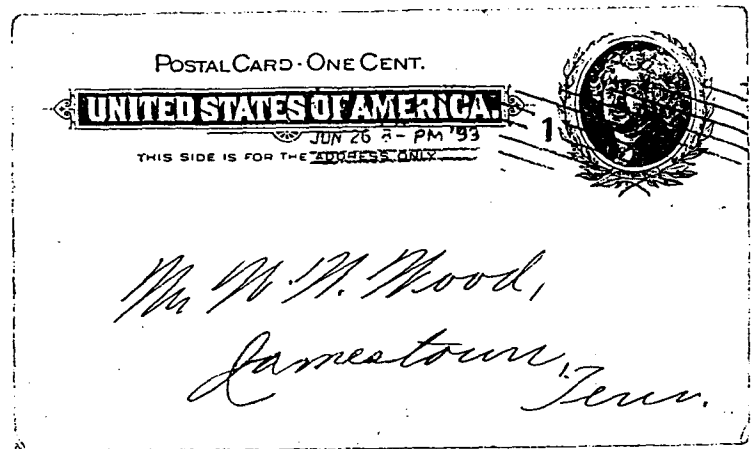 POSTAL CARD - ONE CENT.
UNITED STATES OF AMERICA.
JUN 26 8- PM '93
1
THIS SIDE IS FOR THE ADDRESS ONLY
Mr W. W. Wood,
Jamestown,
Tenn.